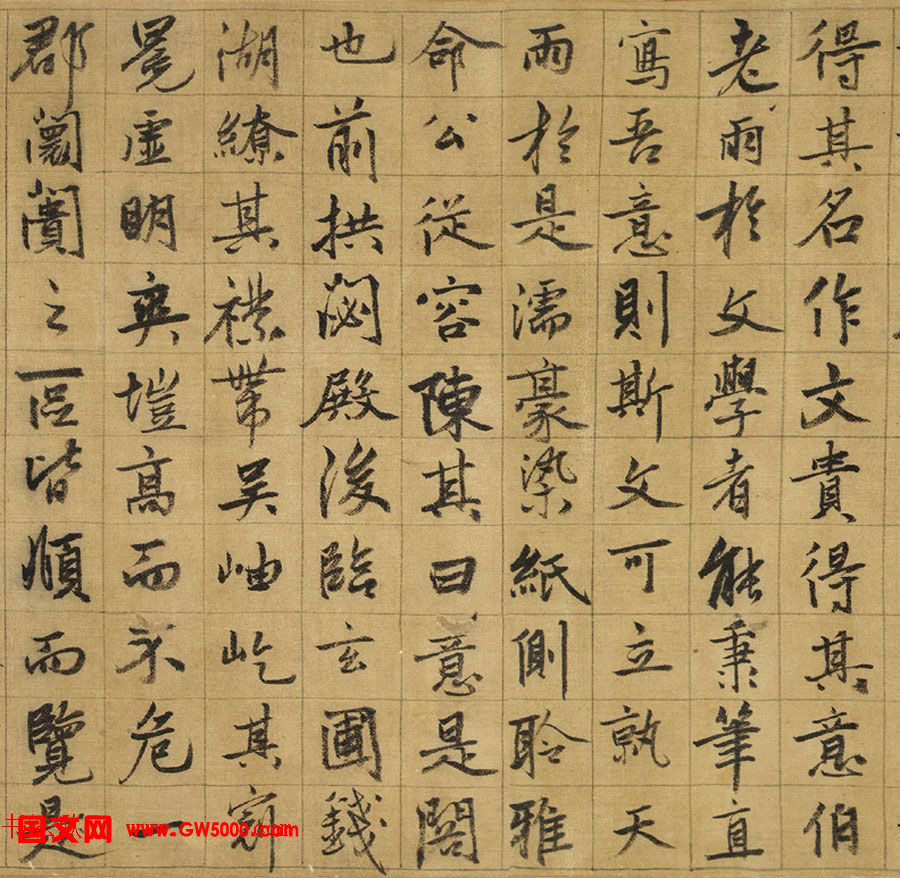 得其名作文貴得其意伯
老雨於文學者能秉筆直
寫吾意則斯文可立就天
雨於是濡豪染紙側聆雅
命公從容陳其曰意是閣
也前拱閟殿後臨玄圃錢
湖繚其襟帶吳岫屹其冠
冕虛明爽塏高而不危一
郡闤闠之區皆頫而覽是
国文网 www.GW5000.com